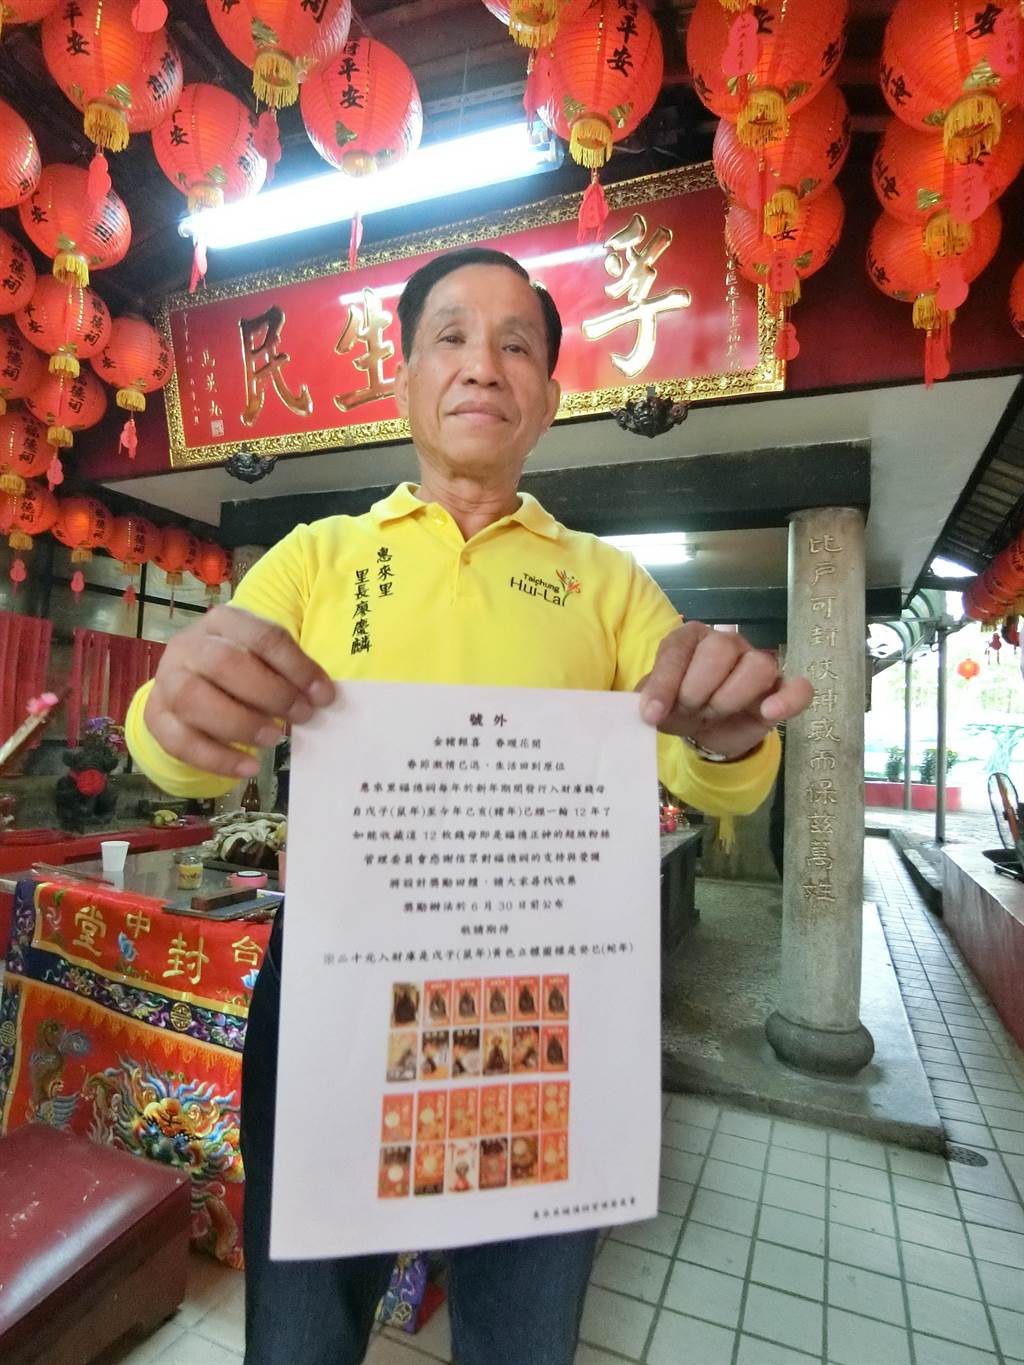 平安
平安
平安
平安
福德祠
孚
生
民
馬英九
惠來里
里長廖慶麟
Taichung
Hui-Lai
比戶可封伏神威而保茲萬姓
號外
金豬報喜 春暖花開
春節激情已過，生活回到原位
惠來里福德祠每年於新年期間發行入財庫錢母
自戊子(鼠年)至今年己亥(豬年)已經一輪12年了
如能收藏這12枚錢母即是福德正神的超級粉絲
管理委員會感謝信眾對福德祠的支持與愛護
將設計獎勵回饋，請大家尋找收藏
獎勵辦法於6月30日前公布
敬請期待
※二十元入財庫是戊子(鼠年)黃色立體圖樣是癸巳(蛇年)
惠來里福德祠管理委員會
台中
封
堂